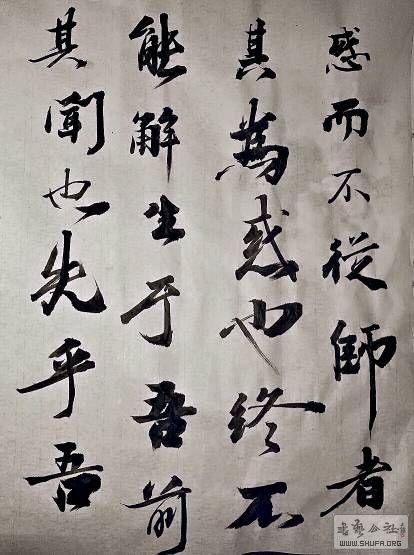 惑而不從師者
其為惑也終不
能解生于吾前
其聞也先乎吾
書藝公社
WWW.SHUFA.ORG